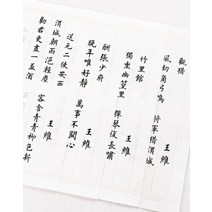 觀獵 王維
風勁角弓鳴 將軍獵渭城
竹里館 王維
獨坐幽篁里 彈琴復長嘯
酬張少府 王維
晚年唯好靜 萬事不關心
送元二使安西 王維
渭城朝雨浥輕塵 客舍青青柳色新
勸君更盡一盃酒